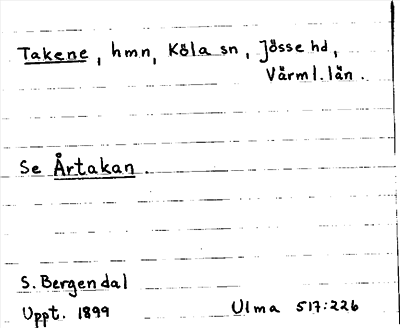 Takene, hmn, Köla sn, Jösse hd,
Värml. län.
Se Årtakan.
S. Bergendal
Uppt. 1899 Ulma 517:226